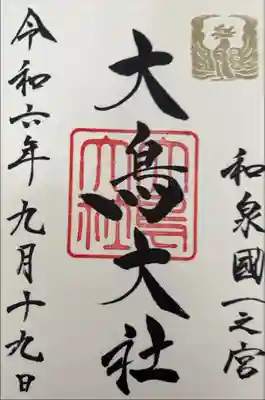 和泉國一之宮
大鳥大社
令和六年九月十九日